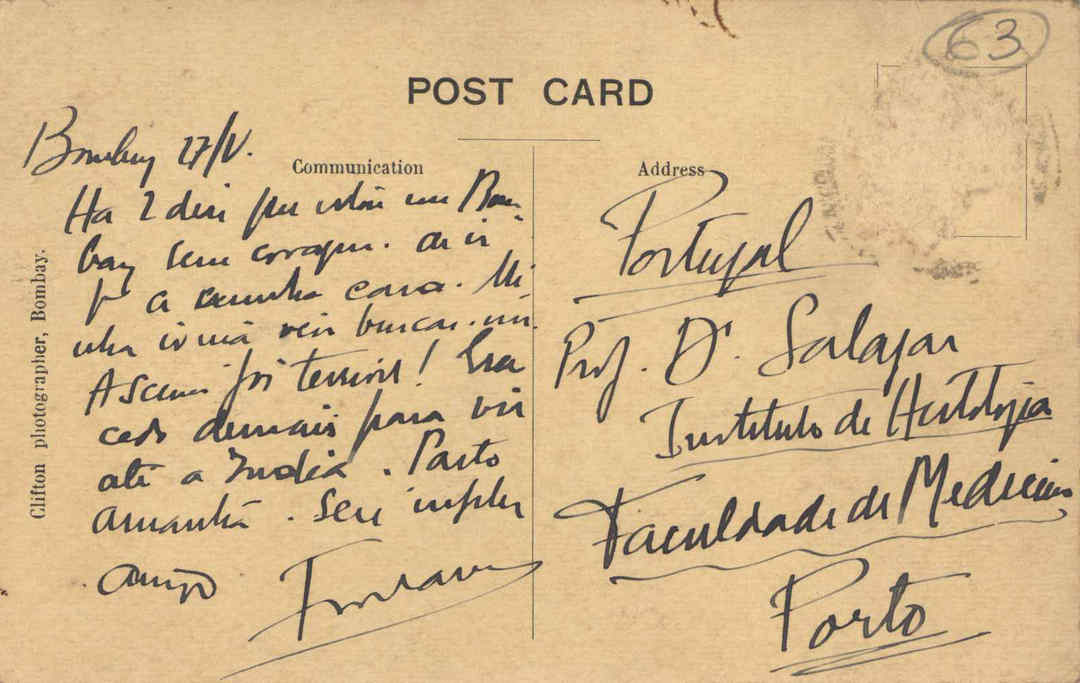 63
POST CARD
Communication
Address
Clifton photographer, Bombay.
Bombay 27/V.
Ha 2 dias que estou em Bom-
bay sem coragem de ir
p a minha casa. Mi-
nha irmã veio buscar-me.
A scena foi terrivel! Era
cedo demais para vir
até a India. Parto
amanhã. Seu
amigo
Portugal
Prof. Dr Salazar
Instituto de Histologia
Faculdade de Medicina
Porto